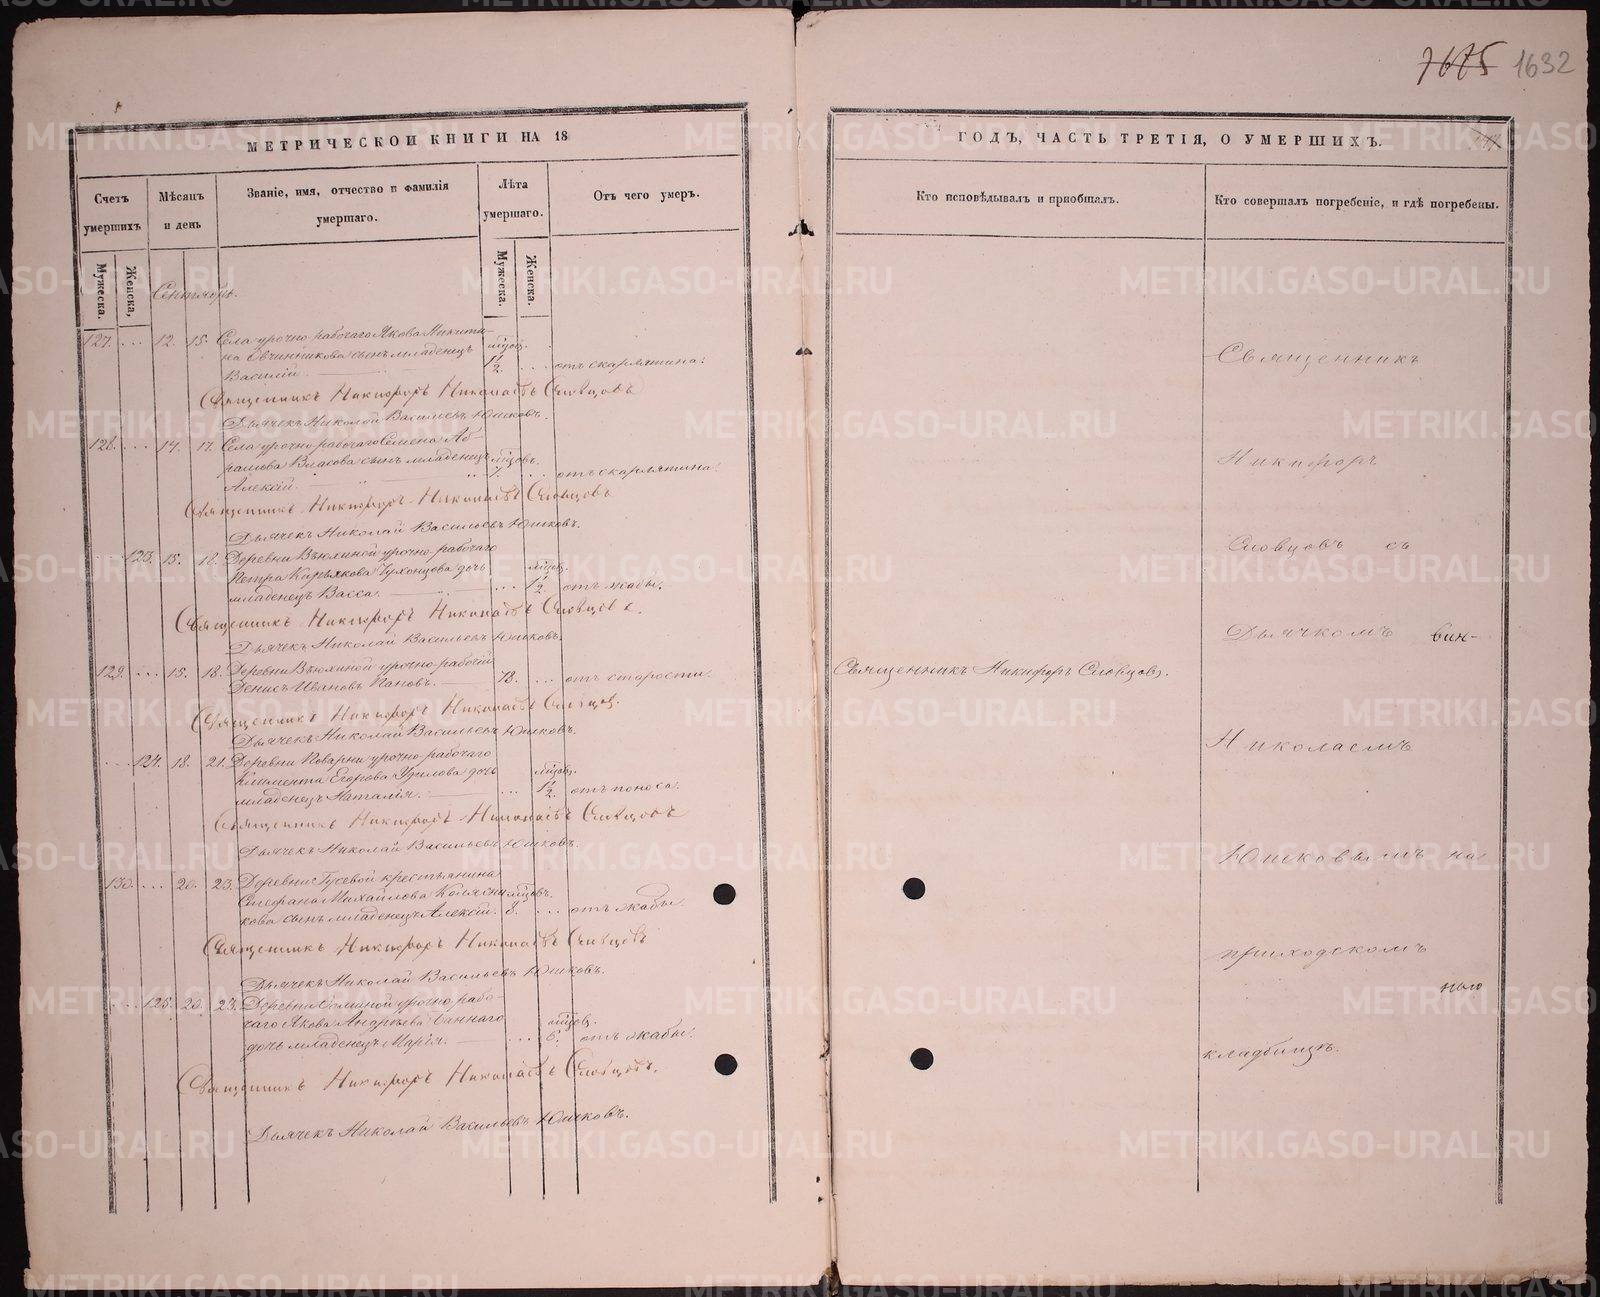 7675 1632
МЕТРИЧЕСКОЙ КНИГИ НА 18
Счетъ умершихъ
Мужеска.
Женска,
Мѣсяцъ и день
Званіе, имя, отчество и фамилія
умершаго.
Лѣта
умершаго.
Мужеска.
Женска.
Отъ чего умеръ.
Сентябрь.
127. ... 12. 15. Села урочно рабочаго Якова Никити-
на Овчинникова сынъ младенецъ мѣсяц.
Василій. 1/2. .. отъ скарлятина.
Священникъ Никифоръ Николаевъ Словцовъ
Дьячекъ Николай Васильевъ Юшковъ.
128. ... 14. 17. Села урочно рабочаго Семена Аб-
рамова Власова сынъ младенецъ мѣсяцовъ.
Алексій. 7. .. отъ скарлятина.
Священникъ Никифоръ Николаевъ Словцовъ
Дьячекъ Николай Васильевъ Юшковъ.
... 123. 15. 18. Деревни Вьюхиной урочно рабочаго
Петра Карпякова Чухонцова дочь мѣсяц.
младенецъ Васса. ... 1/2. отъ жабы.
Священникъ Никифоръ Николаевъ Словцовъ.
Дьячекъ Николай Васильевъ Юшковъ.
129. ... 15. 18. Деревни Вьюхиной урочно-рабочій
Денисъ Ивановъ Пановъ. 73. ... отъ старости.
Священникъ Никифоръ Николаевъ Словцовъ.
Дьячекъ Николай Васильевъ Юшковъ.
... 124. 18. 21. Деревни Поварни урочно рабочаго
Климента Егорова дочь мѣсяцов.
младенецъ Наталія. ... 1/2. отъ поноса.
Священникъ Никифоръ Николаевъ Словцовъ
Дьячекъ Николай Васильевъ Юшковъ.
130. ... 20. 23. Деревни Гусевой крестьянина
Стефана Михайлова Колясни- мѣсяцовъ.
кова сынъ младенецъ Алексій. 8. ... отъ жабы.
Священникъ Никифоръ Николаевъ Словцовъ
Дьячекъ Николай Васильевъ Юшковъ.
... 125. 20. 23. Деревни урочно рабо-
чаго Якова Андреева Баннаго мѣсяцов.
дочь младенецъ Марія. ... 6. отъ жабы.
Священникъ Никифоръ Николаевъ Словцовъ.
Дьячекъ Николай Васильевъ Юшковъ.
ГОДЪ, ЧАСТЬ ТРЕТІЯ, О УМЕРШИХЪ.
Кто исповѣдывалъ и пріобщалъ.
Кто совершалъ погребеніе, и гдѣ погребены.
Священникъ Никифоръ Словцовъ.
Священникъ
Никифоръ
Словцовъ съ
Дьячкомъ
Николаемъ
Юшковымъ на
приходскомъ
кладбищѣ.